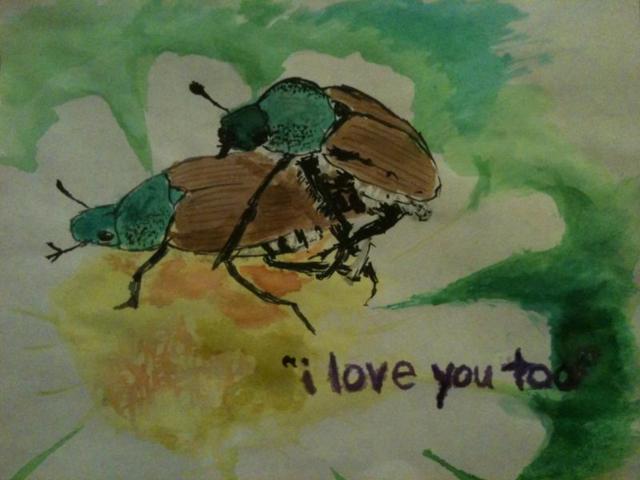 "i love you too"